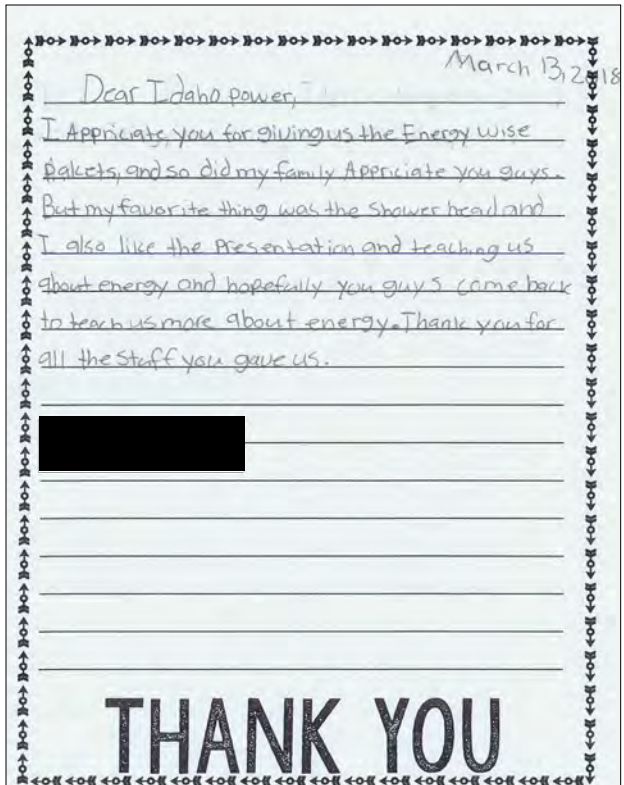 March 13, 2018
Dear Idaho power,
I Appriciate you for giving us the Energy wise
Pakets, and so did my family Appriciate you guys.
But my favorite thing was the shower head and
I also like the Presentation and teaching us
about energy and hopefully you guys come back
to teach us more about energy. Thank you for
all the stuff you gave us.
THANK YOU